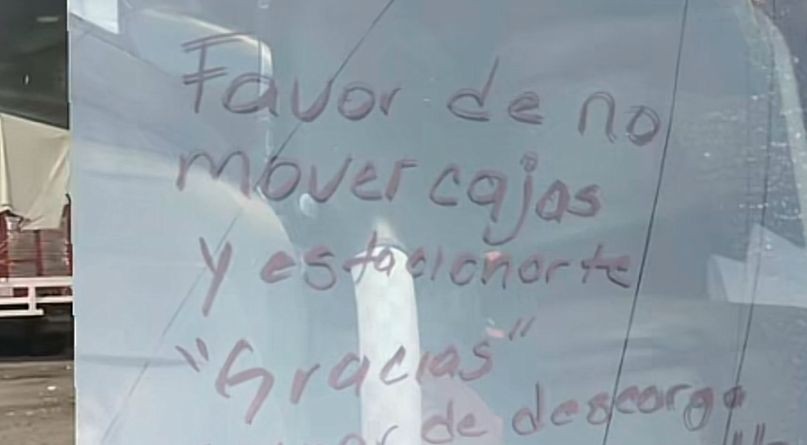 Favor de no
mover cajas
y estacionarte
"Gracias"
de descarga